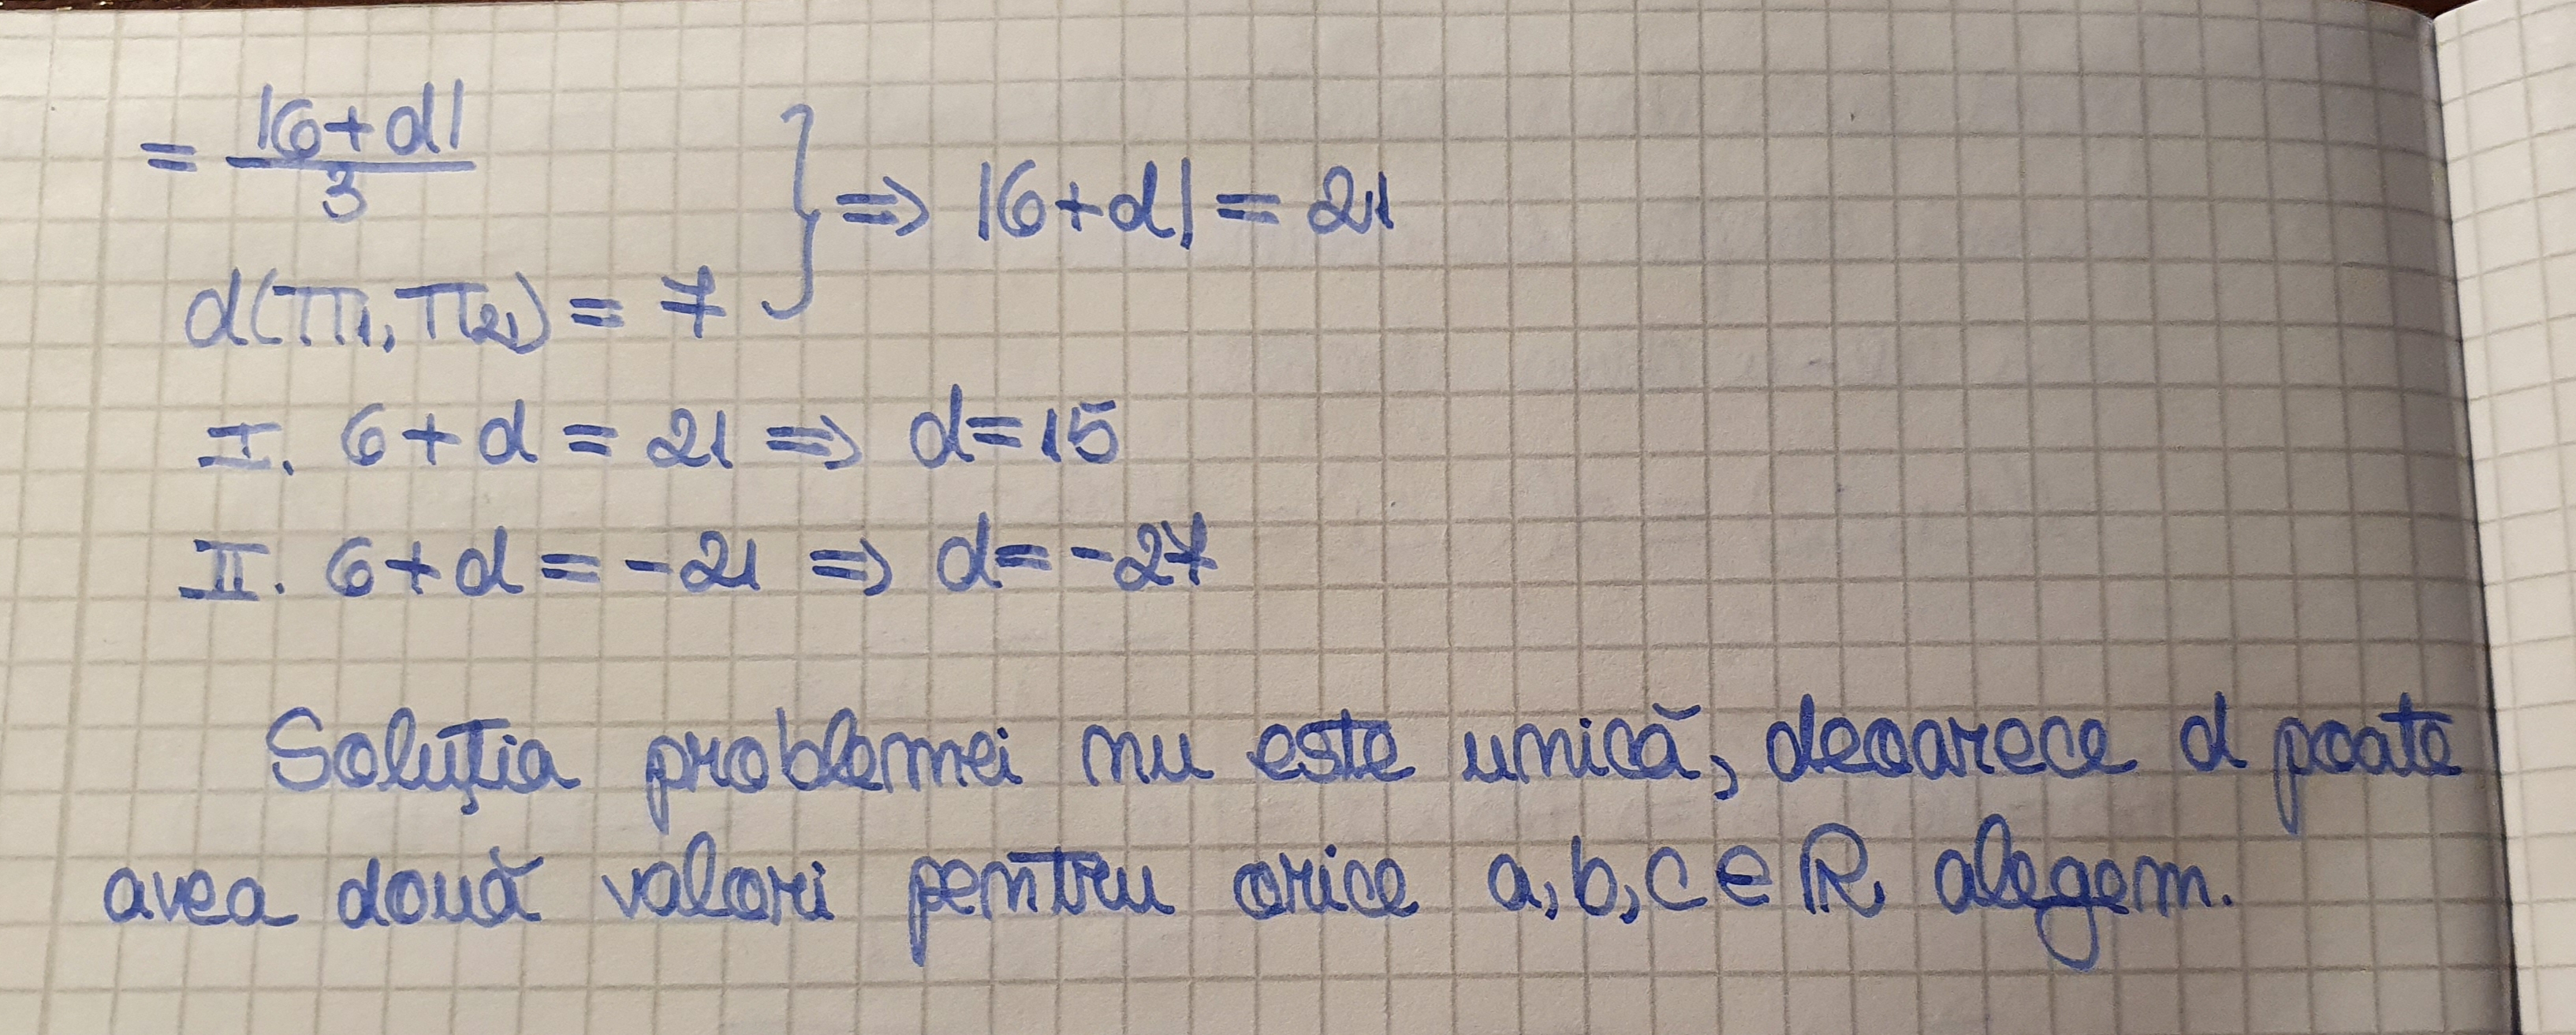 = |6+d| / 3
} => |6+d| = 21
d(π1, π2) = 7
I. 6+d = 21 => d=15
II. 6+d = -21 => d=-27
Soluția problemei nu este unică, deoarece d poate
avea două valori pentru orice a,b,c∈ℝ alegem.